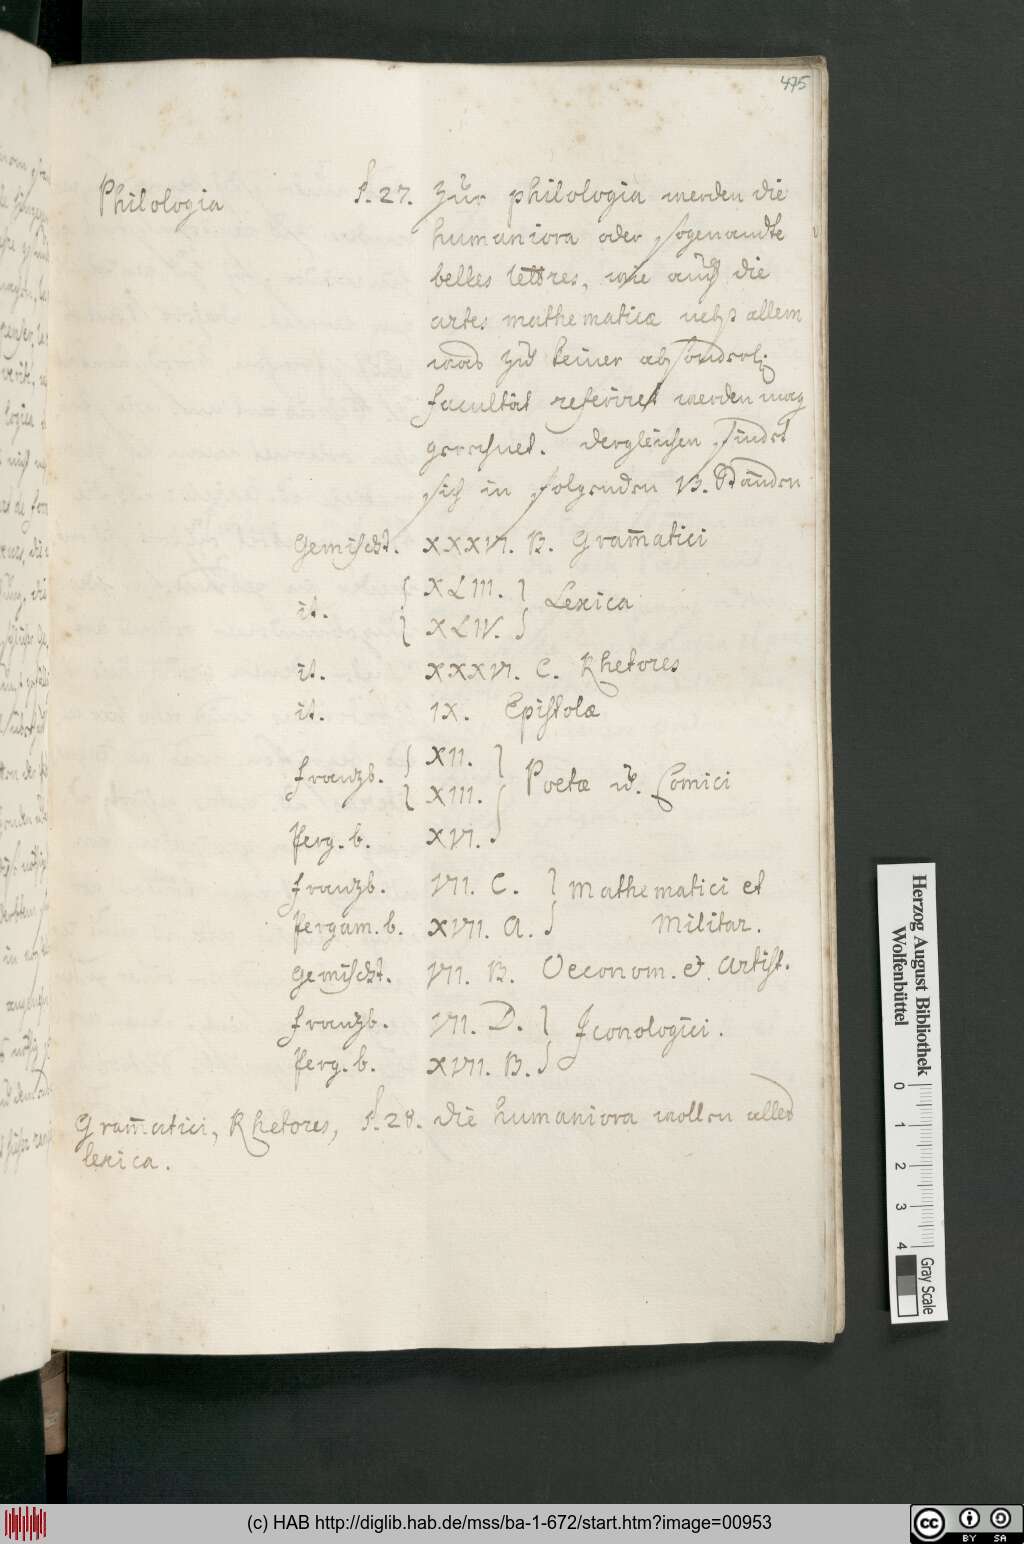 475
Philologia
§. 27. Zur philologia werden die
humaniora oder sogenandte
belles lettres, wie auch die
artes mathematicæ nebst allem
was zu keiner absonderl.
facultät referiret werden mag
gerechnet. dergleichen findet
sich in folgenden B. Ständen
Gemischt. XXXVI. B. Gram̄atici
it. XLIII. Lexica
XLIV.
it. XXXVI. C. Rhetores
it. IX. Epistolæ
Frantzb. XII. Poetæ u. Comici
XIII.
Perg. b. XVI.
Frantzb. VII. C. Mathematici et
Pergam. b. XVII. A. Militar.
Gemischt. VII. B. Oeconom. et Artist.
Frantzb. VII. D. Iconologici.
Perg. b. XVII. B.
Gram̄atici, Rhetores, §. 28. die humaniora wollen alles
lexica.
Herzog August Bibliothek
Wolfenbüttel
0 1 2 3 4
Gray Scale
HAB
(c) HAB http://diglib.hab.de/mss/ba-1-672/start.htm?image=00953
cc BY SA